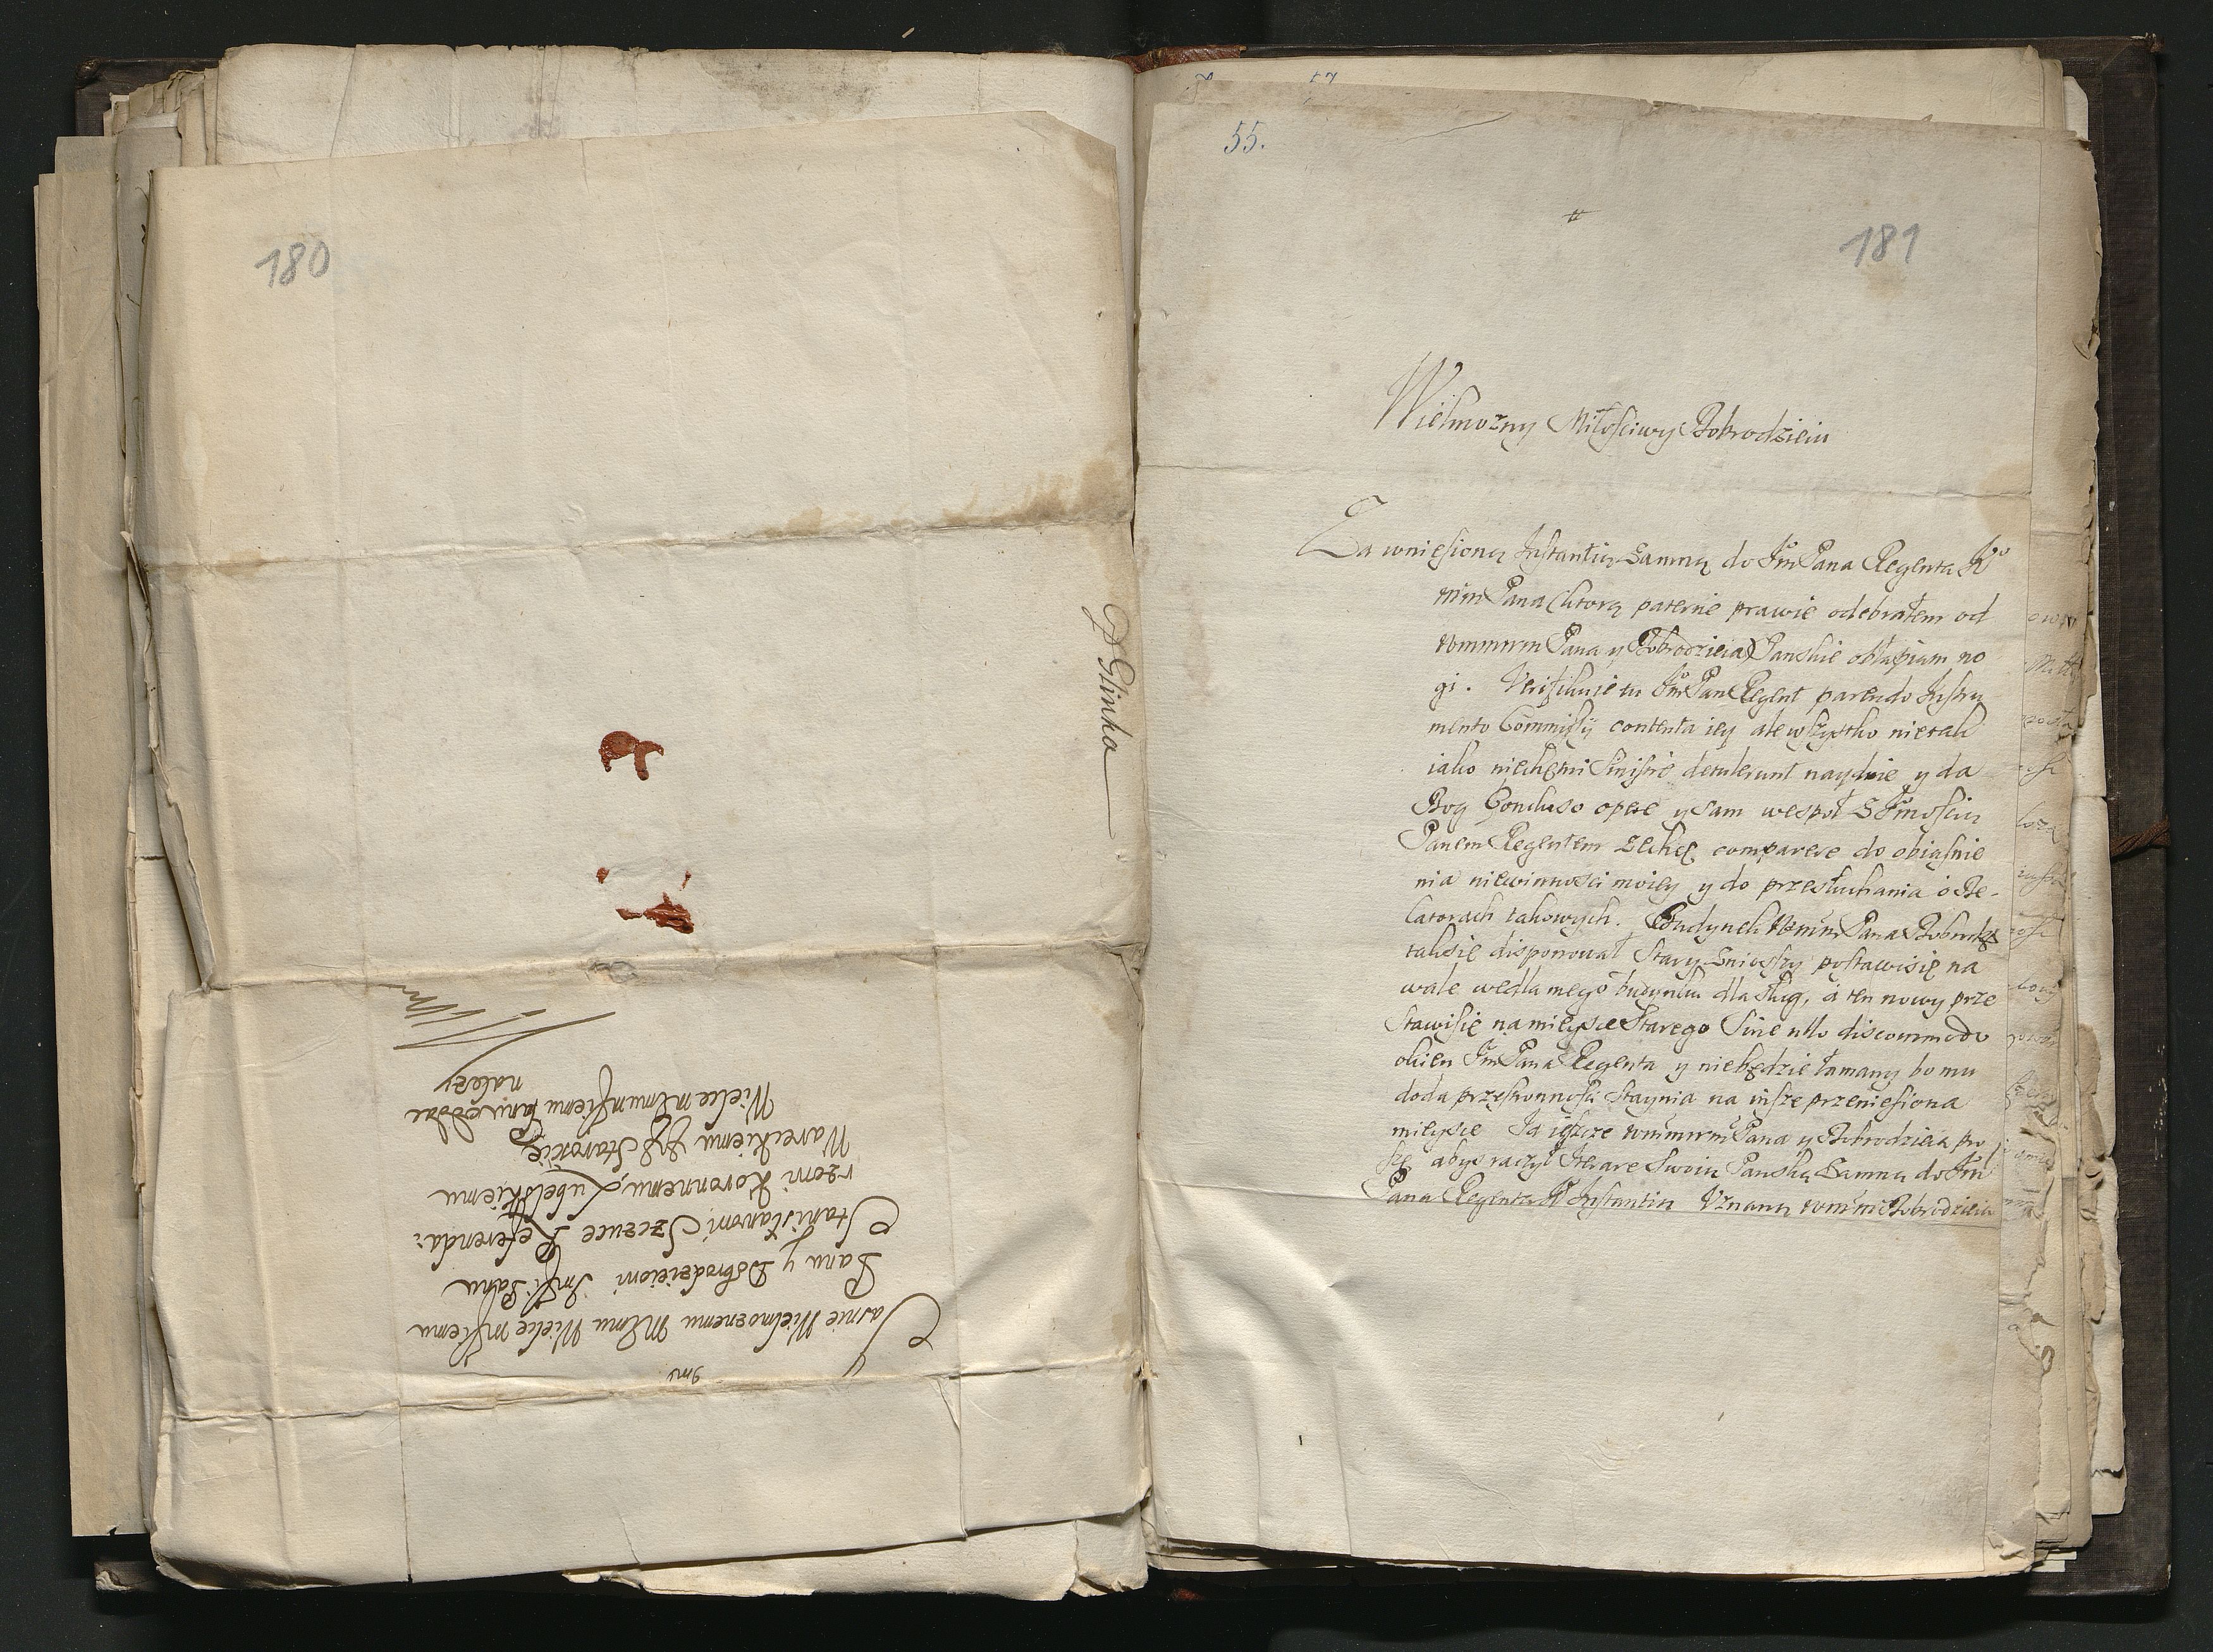 180
P Glinka
Jasnie Wielmoznemu Mlmu Wielce msciemu
Panu y Dobrodzieiowi Jmsci Panu
Stanisławowi Szczuce Referenda:
rzowi Koronnemu, Lubelskiemu
Wareckiemu Staroscie
Wielce
nalezy
55.
181
Wielmozny Miłosciwy Dobrodzieiu
Za wniesioną Instantią zamną do Jm Pana Regenta
mm Pana ktorą paterne prawie odebrałem od
wmmm Pana y Dobrodzieia Panskie obłapiam no
gi. Verifikuie tu Jm Pan Regent parendo Instru
mento Commissÿ contenta iey ale wszystko nietak
iako niechętni sinistre detulerunt nayduie y da
Bog Concluso opere y sam wespoł z Jmoscią
Panem Regentem zechcę comparere do obiasnie
nia niewinnosci moiey y do przesłuchania o De-
latorach takowych. Budynek wmm Pana Dobrodz
taksie disponował stary zniozszy postawisię na
wale wedla mego budynku dla sług, a ten nowy prze
stawisię na mieysce starego sine ullo discommodo
okien Jm Pana Regenta y niebędzie łamany bo mu
doda przestronnosci staynia na insze przeniesiona
mieysce Ja ieszcze wmmm Pana y Dobrodzieia pro
szę abys raczył iterare swoią Panską zamną do Jm
Pana Regenta Instantią Uznaną wmm Dobrodzieia